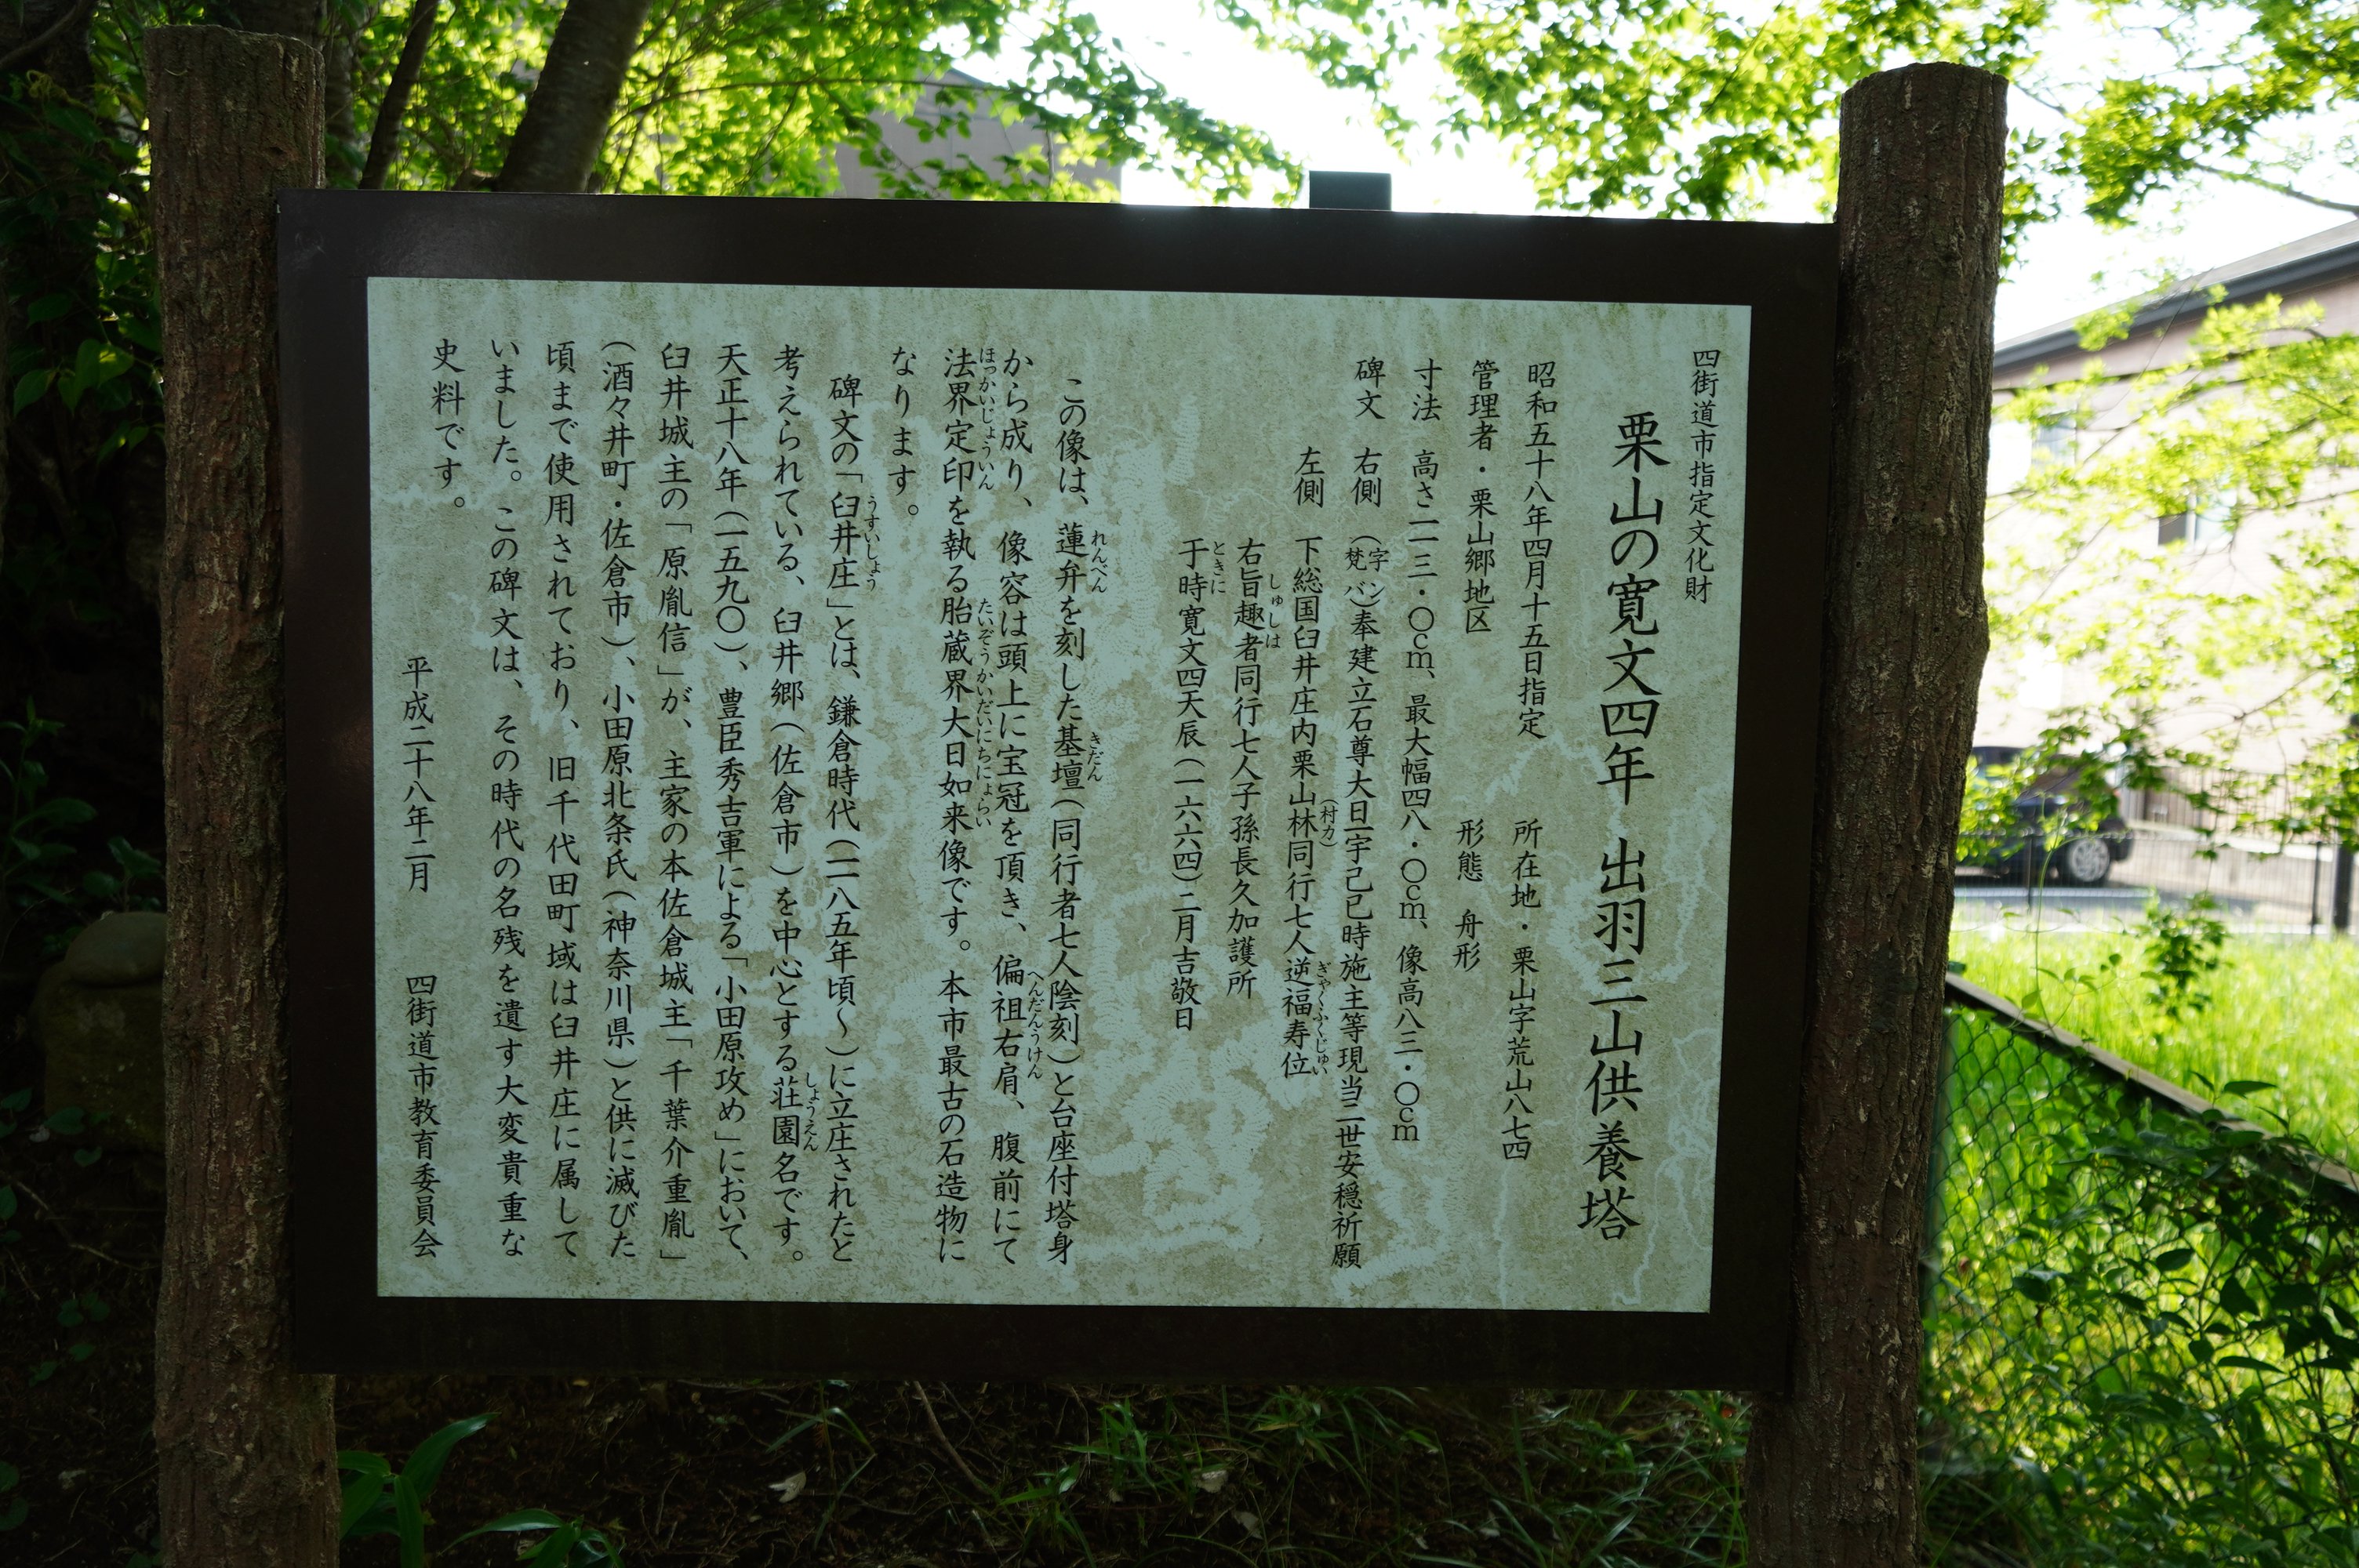 四街道市指定文化財
栗山の寛文四年 出羽三山供養塔
昭和五十八年四月十五日指定 所在地・栗山字荒山八七四
管理者・栗山郷地区 形態 舟形
寸法 高さ一一三・〇cm、最大幅四八・〇cm、像高八三・〇cm
碑文 右側 (梵字バン)奉建立石尊大日一宇己已時施主等現当二世安穏祈願
左側 下総国臼井庄内栗山林(村カ)同行七人逆福寿位(ぎゃくふくじゅい)
右旨趣者(しゅしは)同行七人子孫長久加護所
于時(ときに)寛文四天辰(一六六四)二月吉敬日
この像は、蓮弁(れんべん)を刻した基壇(きだん)(同行者七人陰刻)と台座付塔身
から成り、像容は頭上に宝冠を頂き、偏祖右肩(へんだんうけん)、腹前にて
法界定印(ほっかいじょういん)を執る胎蔵界大日如来(たいぞうかいだいにちにょらい)像です。本市最古の石造物に
なります。
碑文の「臼井庄(うすいしょう)」とは、鎌倉時代(一一八五年頃～)に立庄されたと
考えられている、臼井郷(佐倉市)を中心とする荘園(しょうえん)名です。
天正十八年(一五九〇)、豊臣秀吉軍による「小田原攻め」において、
臼井城主の「原胤信」が、主家の本佐倉城主「千葉介重胤」
(酒々井町・佐倉市)、小田原北条氏(神奈川県)と供に滅びた
頃まで使用されており、旧千代田町域は臼井庄に属して
いました。この碑文は、その時代の名残を遺す大変貴重な
史料です。
平成二十八年二月 四街道市教育委員会